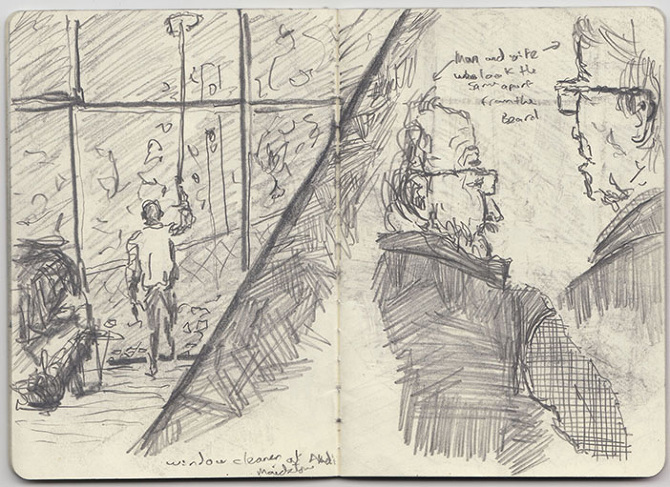 window cleaner at Aldi
Maidstone
Man and wife
who look the
same apart
from the
Beard